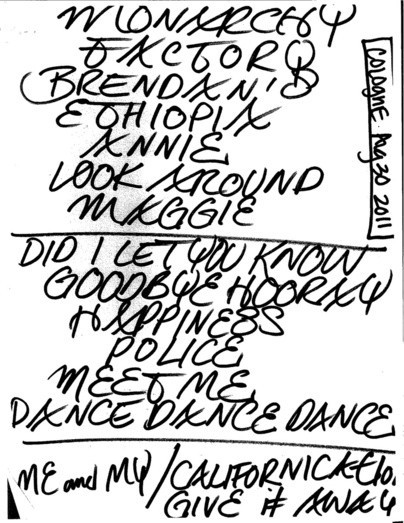 MONARCHY
FACTORY
BRENDAN'S
ETHIOPIA
ANNIE
LOOK AROUND
MAGGIE
COLOGNE Aug 30 2011
DID I LET YOU KNOW
GOODBYE HOORAY
HAPPINESS
POLICE
MEET ME
DANCE DANCE DANCE
ME and MY / CALIFORNICATIO
GIVE it AWAY